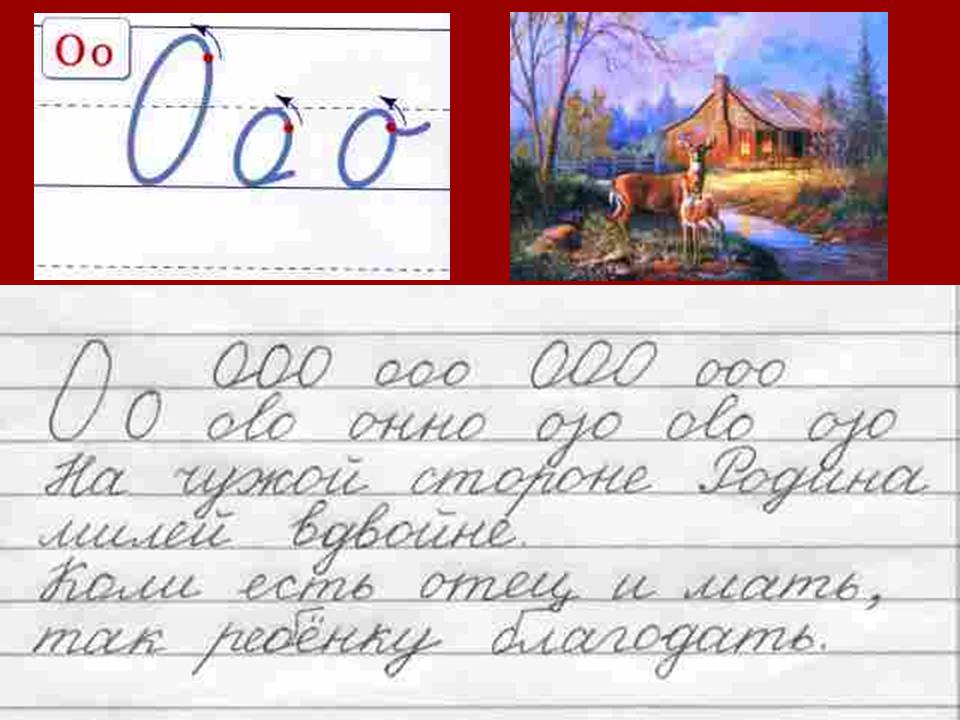 О о
О о о
О о ООО ооо ООО ооо
ово онно ојо ово ојо
На чужой стороне Родина
милей вдвойне.
Коли есть отец и мать,
так ребёнку благодать.